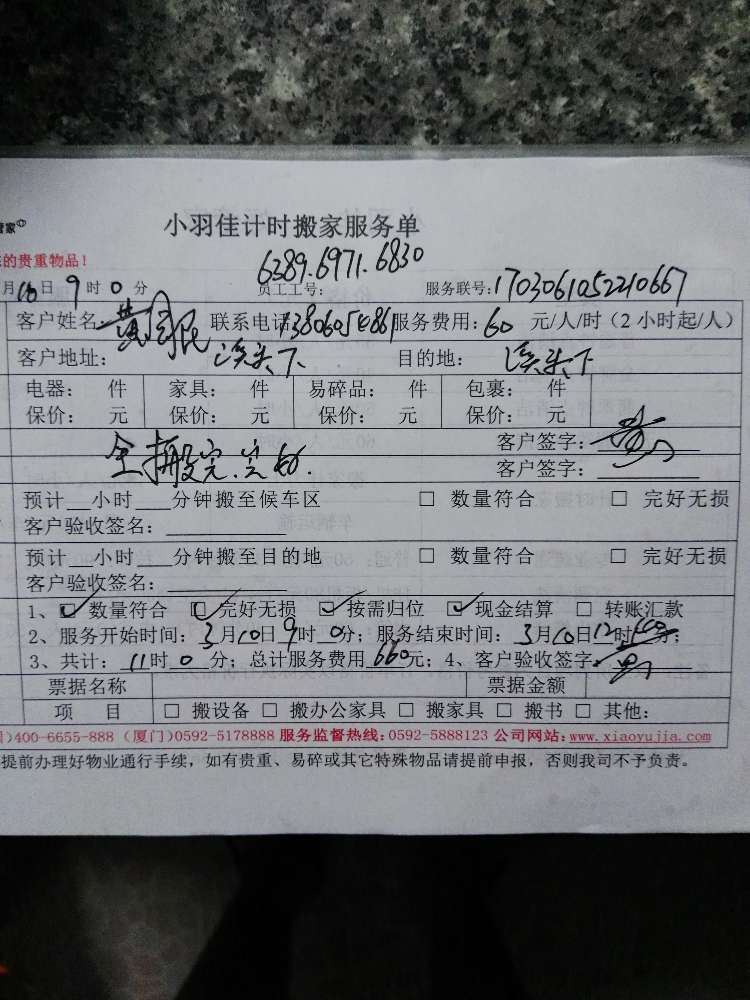 管家
小羽佳计时搬家服务单
的贵重物品！
6389.6971.6830
月10日9时0分 员工工号： 服务联号：1703061052210667
客户姓名 黄 联系电话 服务费用：60 元/人/时（2小时起/人）
客户地址：溪头下 目的地：溪头下
电器： 件 家具： 件 易碎品： 件 包裹： 件
保价： 元 保价： 元 保价： 元 保价： 元
客户签字：
全搬完.完好.
客户签字：
预计__小时___分钟搬至候车区 □ 数量符合 □ 完好无损
客户验收签名：
预计__小时___分钟搬至目的地 □ 数量符合 □ 完好无损
客户验收签名：
1、☑ 数量符合 ☑ 完好无损 ☑ 按需归位 ☑ 现金结算 □ 转账汇款
2、服务开始时间：3月10日9时0分；服务结束时间：3月10日12时 分；
3、共计：11时0分；总计服务费用660元；4、客户验收签字
票据名称 票据金额
项 目 □ 搬设备 □ 搬办公家具 □ 搬家具 □ 搬书 □ 其他：
)400-6655-888（厦门)0592-5178888 服务监督热线：0592-5888123 公司网站：www.xiaoyujia.com
提前办理好物业通行手续，如有贵重、易碎或其它特殊物品请提前申报，否则我司不予负责。